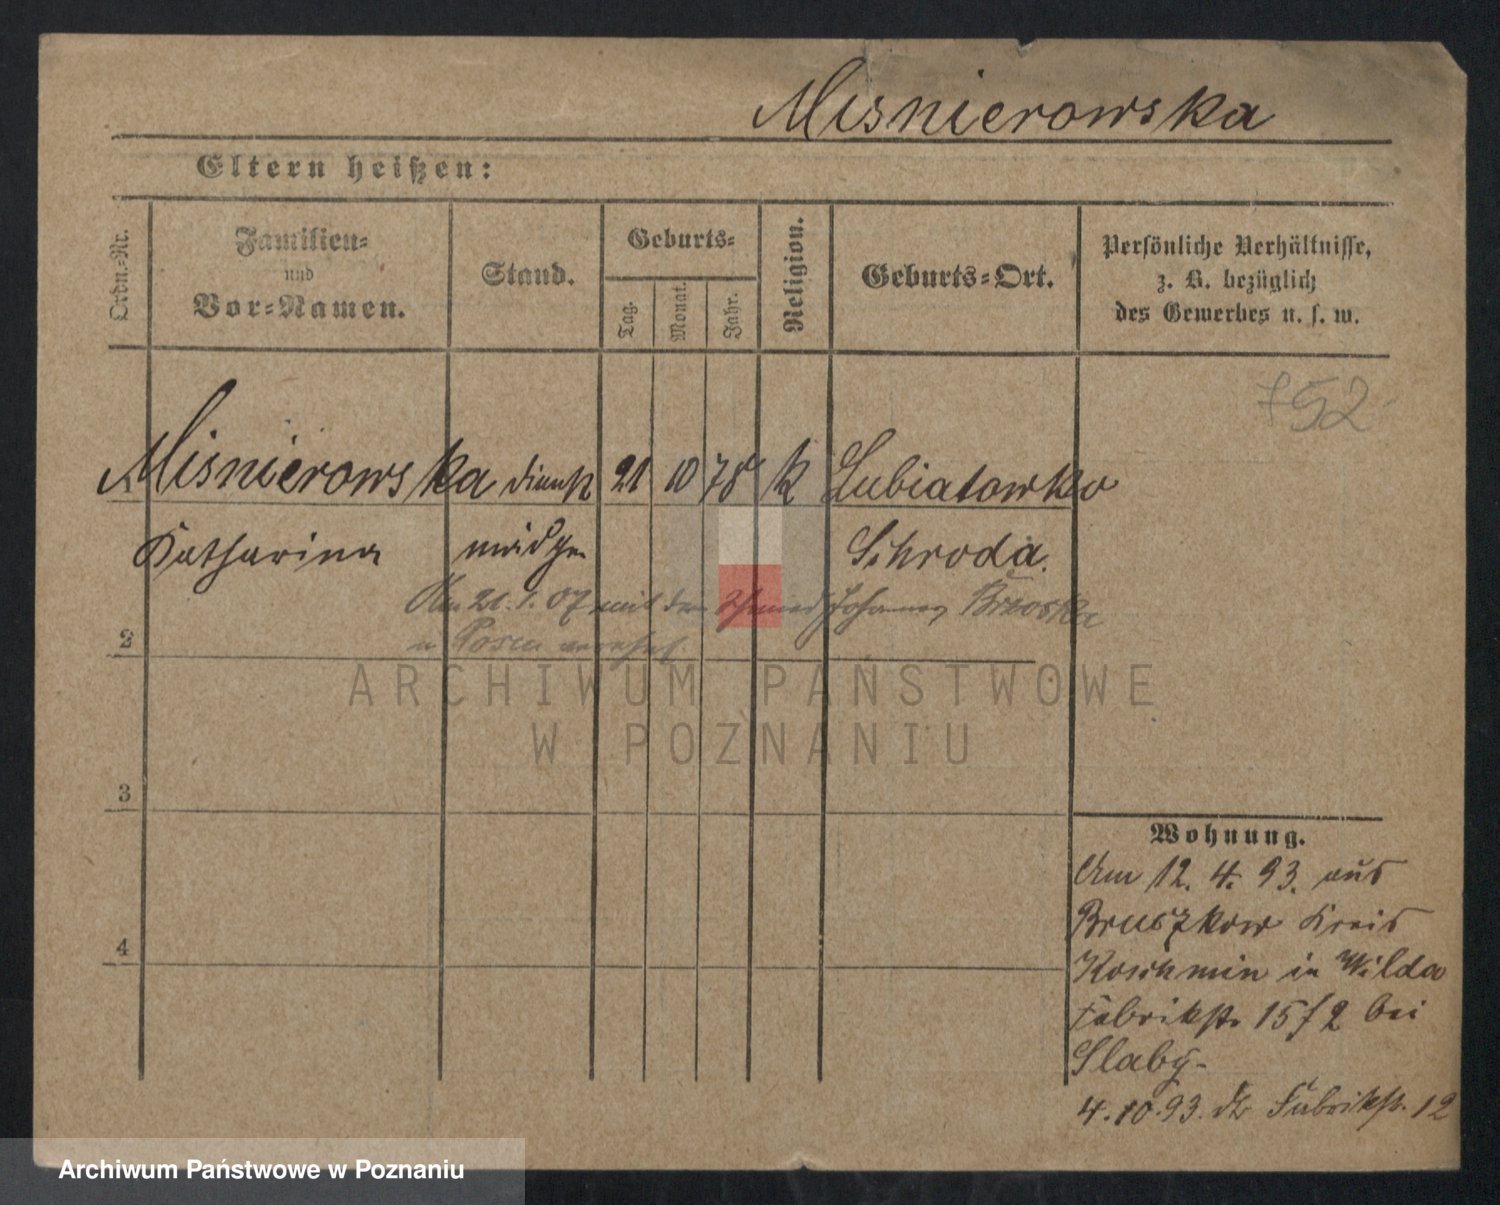 Misnierowska
Eltern heißen:
Ordn.-Nr.
Familien-
und
Vor-Namen.
Stand.
Geburts-
Tag.
Monat.
Jahr.
Religion.
Geburts-Ort.
Persönliche Verhältnisse,
z. B. bezüglich
des Gewerbes u. s. w.
752
Misnierowska dienst 21 10 78 k Lubiatowko
Katharina mädgen Schroda.
Am 21. 1. 07 mit dem Schmied Johannes Brzoska
in Posen verehel.
2
3
4
Wohnung.
Am 12. 4. 93. aus
Bruszkow Kreis
Koschmin in Wilda
Fabrikstr 15 f 2 bei
Slaby-
4. 10. 93. Fabrikstr. 12
ARCHIWUM PAŃSTWOWE
W POZNANIU
Archiwum Państwowe w Poznaniu